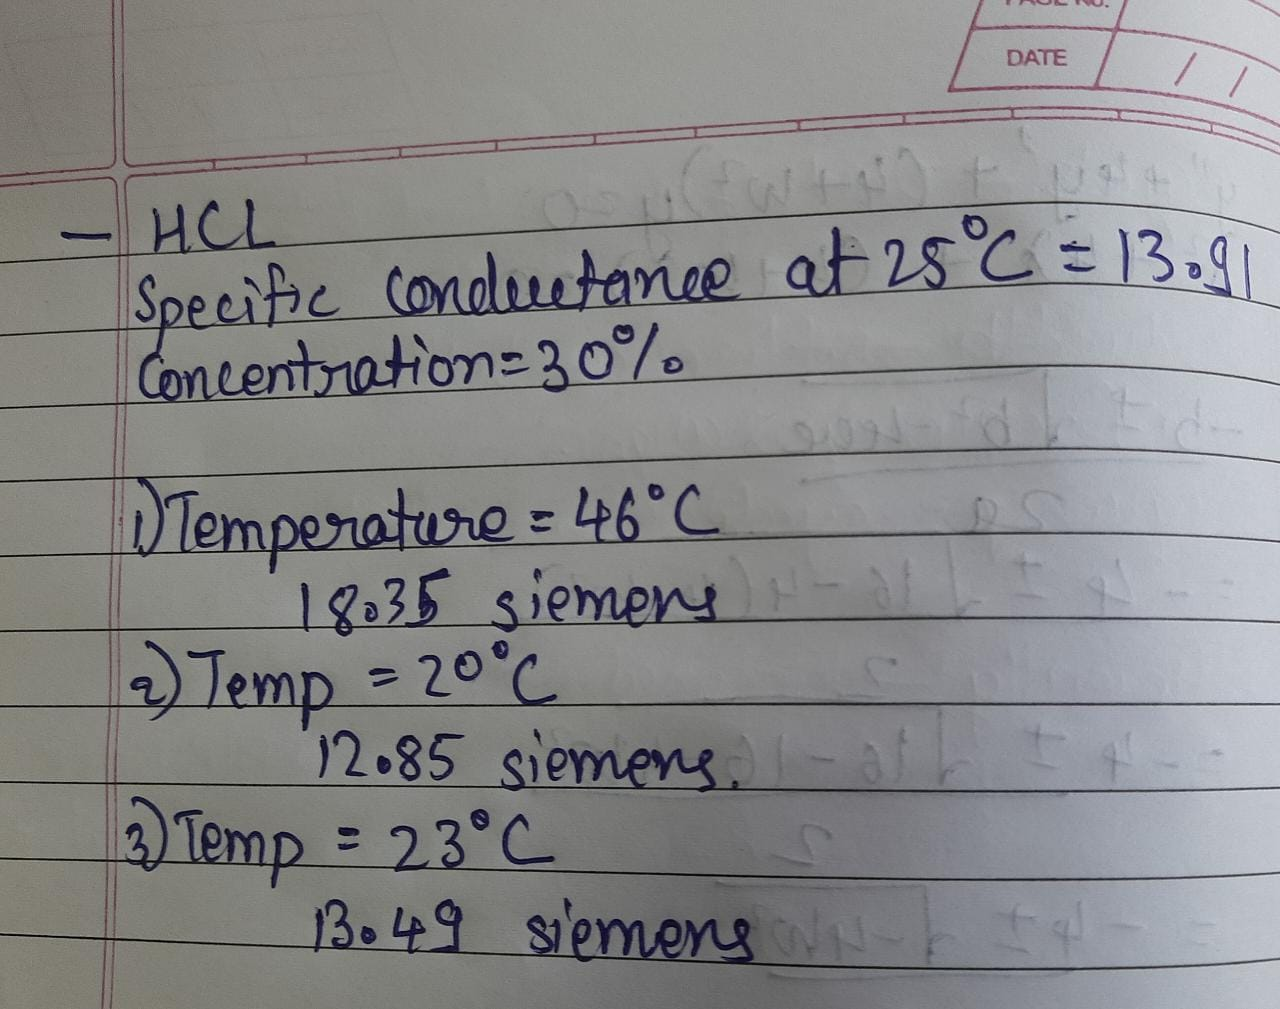 PAGE NO.
DATE / /
- HCL
Specific conductance at 25°C = 13.91
Concentration = 30%
1) Temperature = 46°C
18.35 siemens
2) Temp = 20°C
12.85 siemens.
3) Temp = 23°C
13.49 siemens